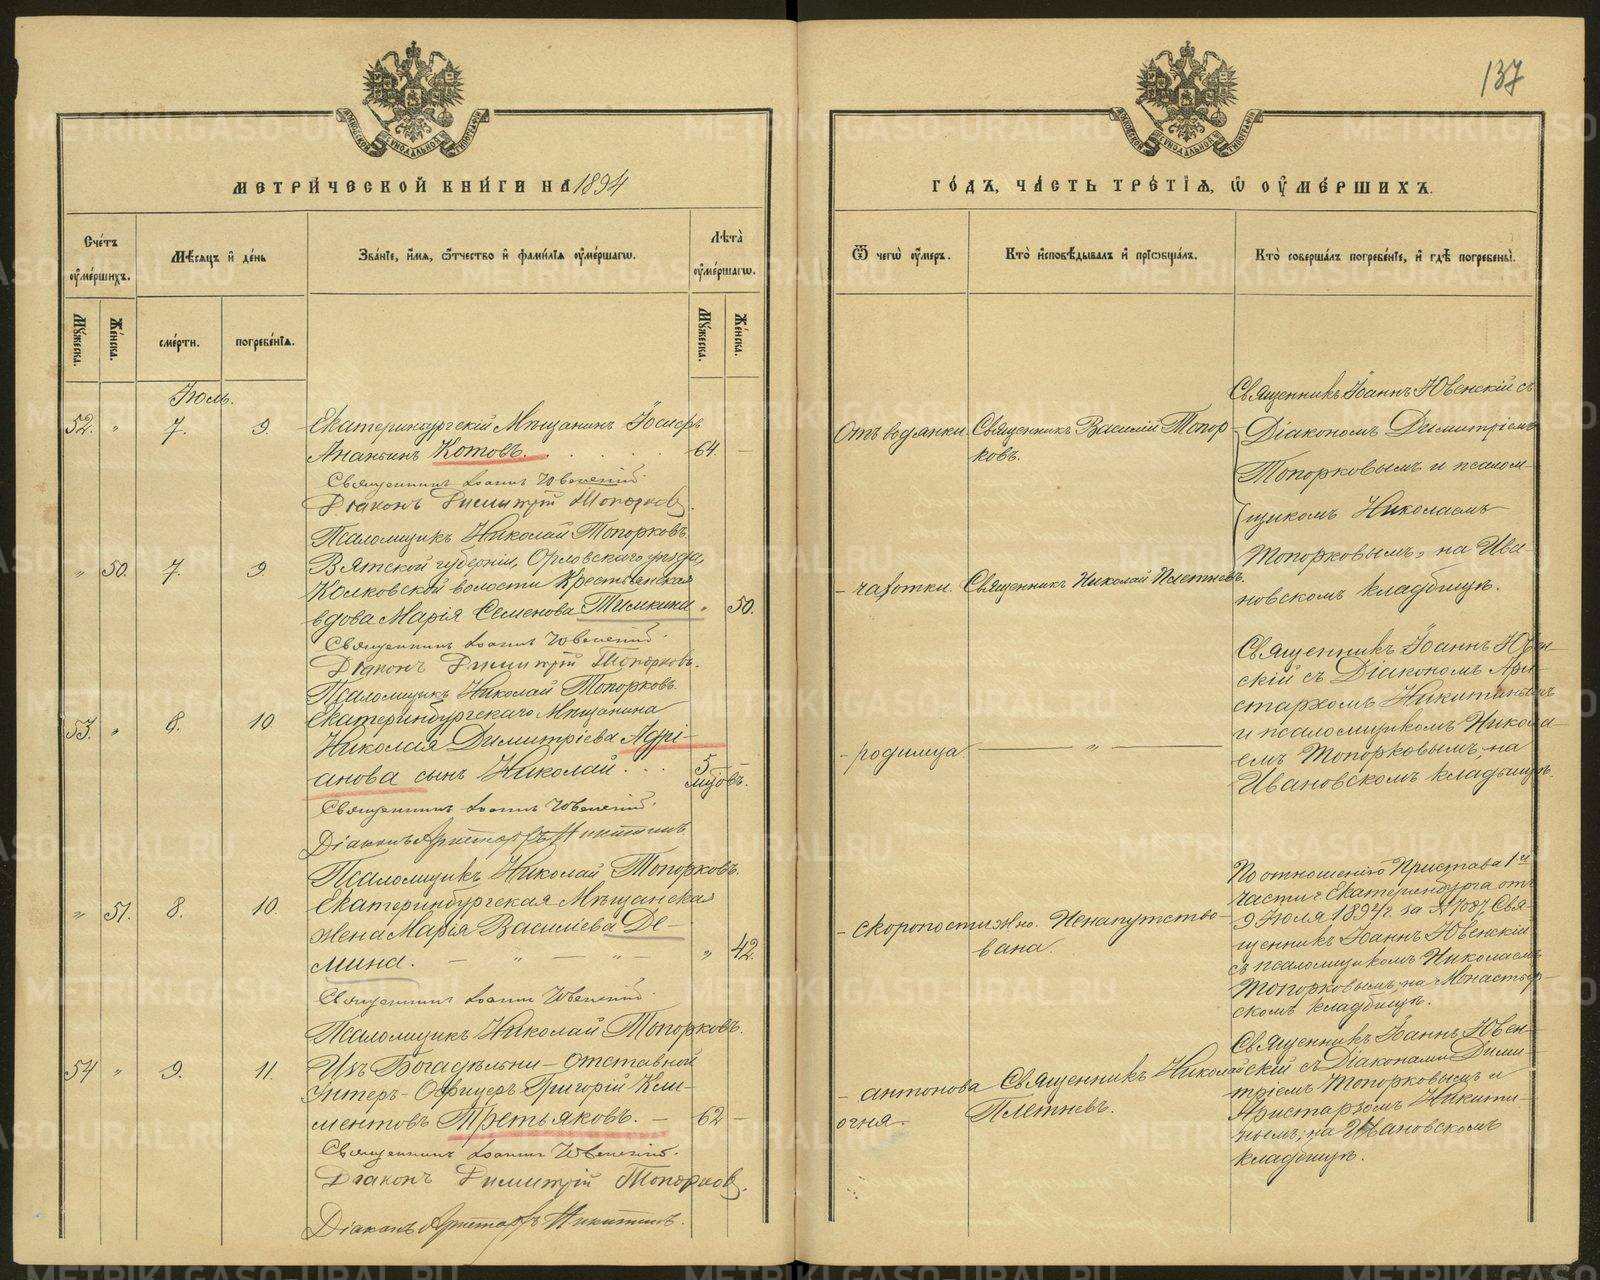 137
МЕТРИ́ЧЕСКОЙ КНИ́ГИ НА 1894
ГО́ДЪ, ЧА́СТЬ ТРЕ́ТІѦ, Ѽ ОУ҆МЕ́РШИХЪ.
Сче́тъ оу҆ме́ршихъ.
Мѣ́сѧцъ и҆ де́нь
Зва́нїе, и҆́мѧ, ѻ҆́тчество и҆ фами́лїѧ оу҆ме́ршагѡ.
Лѣ́та оу҆ме́ршагѡ.
Ѿ чегѡ̀ оу҆́меръ.
Кто̀ и҆сповѣ́дывалъ и҆ прїѡбща́лъ.
Кто̀ соверша́лъ погребе́нїе, и҆ гдѣ̀ погребены̀.
Му́жеска.
Же́нска.
сме́рти.
погребе́нїѧ.
Му́жеска.
Же́нска.
Іюль.
52. " 7. 9.
Екатеринбургскій Мѣщанинъ Іосифъ
Ананьинъ Котовъ. 64. —
Священникъ Іоаннъ Ювенскій.
Діаконъ Димитрій Топорковъ.
Псаломщикъ Николай Топорковъ.
Отъ водянки.
Священникъ Василій Топор-
ковъ.
Священникъ Іоаннъ Ювенскій съ
Діакономъ Димитріемъ
Топорковымъ и псалом-
щикомъ Николаемъ
Топорковымъ, на Ива-
новскомъ кладбищѣ.
" 50. 7. 9.
Вятской губерніи, Орловскаго уѣзда,
Колковской волости Крестьянская
вдова Марія Семенова Тимкина " 50.
Священникъ Іоаннъ Ювенскій.
Діаконъ Димитрій Топорковъ.
Псаломщикъ Николай Топорковъ.
- чахотки.
Священникъ Николай Плетневъ.
53. " 8. 10.
Екатеринбургскаго Мѣщанина
Николая Димитріева Адрі-
анова сынъ Николай . . . 5 мцовъ.
Священникъ Іоаннъ Ювенскій.
Діаконъ Аристархъ Никитинъ.
Псаломщикъ Николай Топорковъ.
- родимца — " —
Священникъ Іоаннъ Ювен-
скій съ Діакономъ Ари-
стархомъ Никитинымъ
и псаломщикомъ Никола-
емъ Топорковымъ, на
Ивановскомъ кладбищѣ.
" 51. 8. 10.
Екатеринбургская Мѣщанская
жена Марія Василіева Де-
мина. — " — " — " 42.
Священникъ Іоаннъ Ювенскій.
Псаломщикъ Николай Топорковъ.
- скоропостижно.
Ненапутство-
вана.
По отношенію Пристава 1й
части г. Екатеринбурга отъ
9 Іюля 1894 г. за № 7087, Свя-
щенникъ Іоаннъ Ювенскій
съ псаломщикомъ Николаемъ
Топорковымъ, на Монастыр-
скомъ кладбищѣ.
54 " 9. 11.
Изъ Богадѣльни - отставной
Унтеръ-Офицеръ Григорій Кли-
ментовъ Третьяковъ. — 62 —
Священникъ Іоаннъ Ювенскій.
Діаконъ Димитрій Топорковъ.
Діаконъ Аристархъ Никитинъ.
- антонова
огня.
Священникъ Николай
Плетневъ.
Священникъ Іоаннъ Ювен-
скій съ Діаконами Дими-
тріемъ Топорковымъ и
Аристархомъ Никити-
нымъ; на Ивановскомъ
кладбищѣ.
METRIKI.GASO-URAL.RU